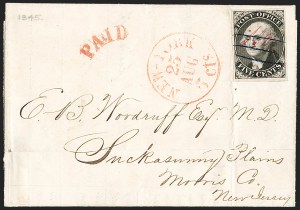 1845.
PAID
NEW-YORK
5 cts
25
AUG
POST OFFICE
FIVE CENTS
E. B. Woodruff Esqr. M. D.
Suckasunny Plains
Morris Co.
New Jersey